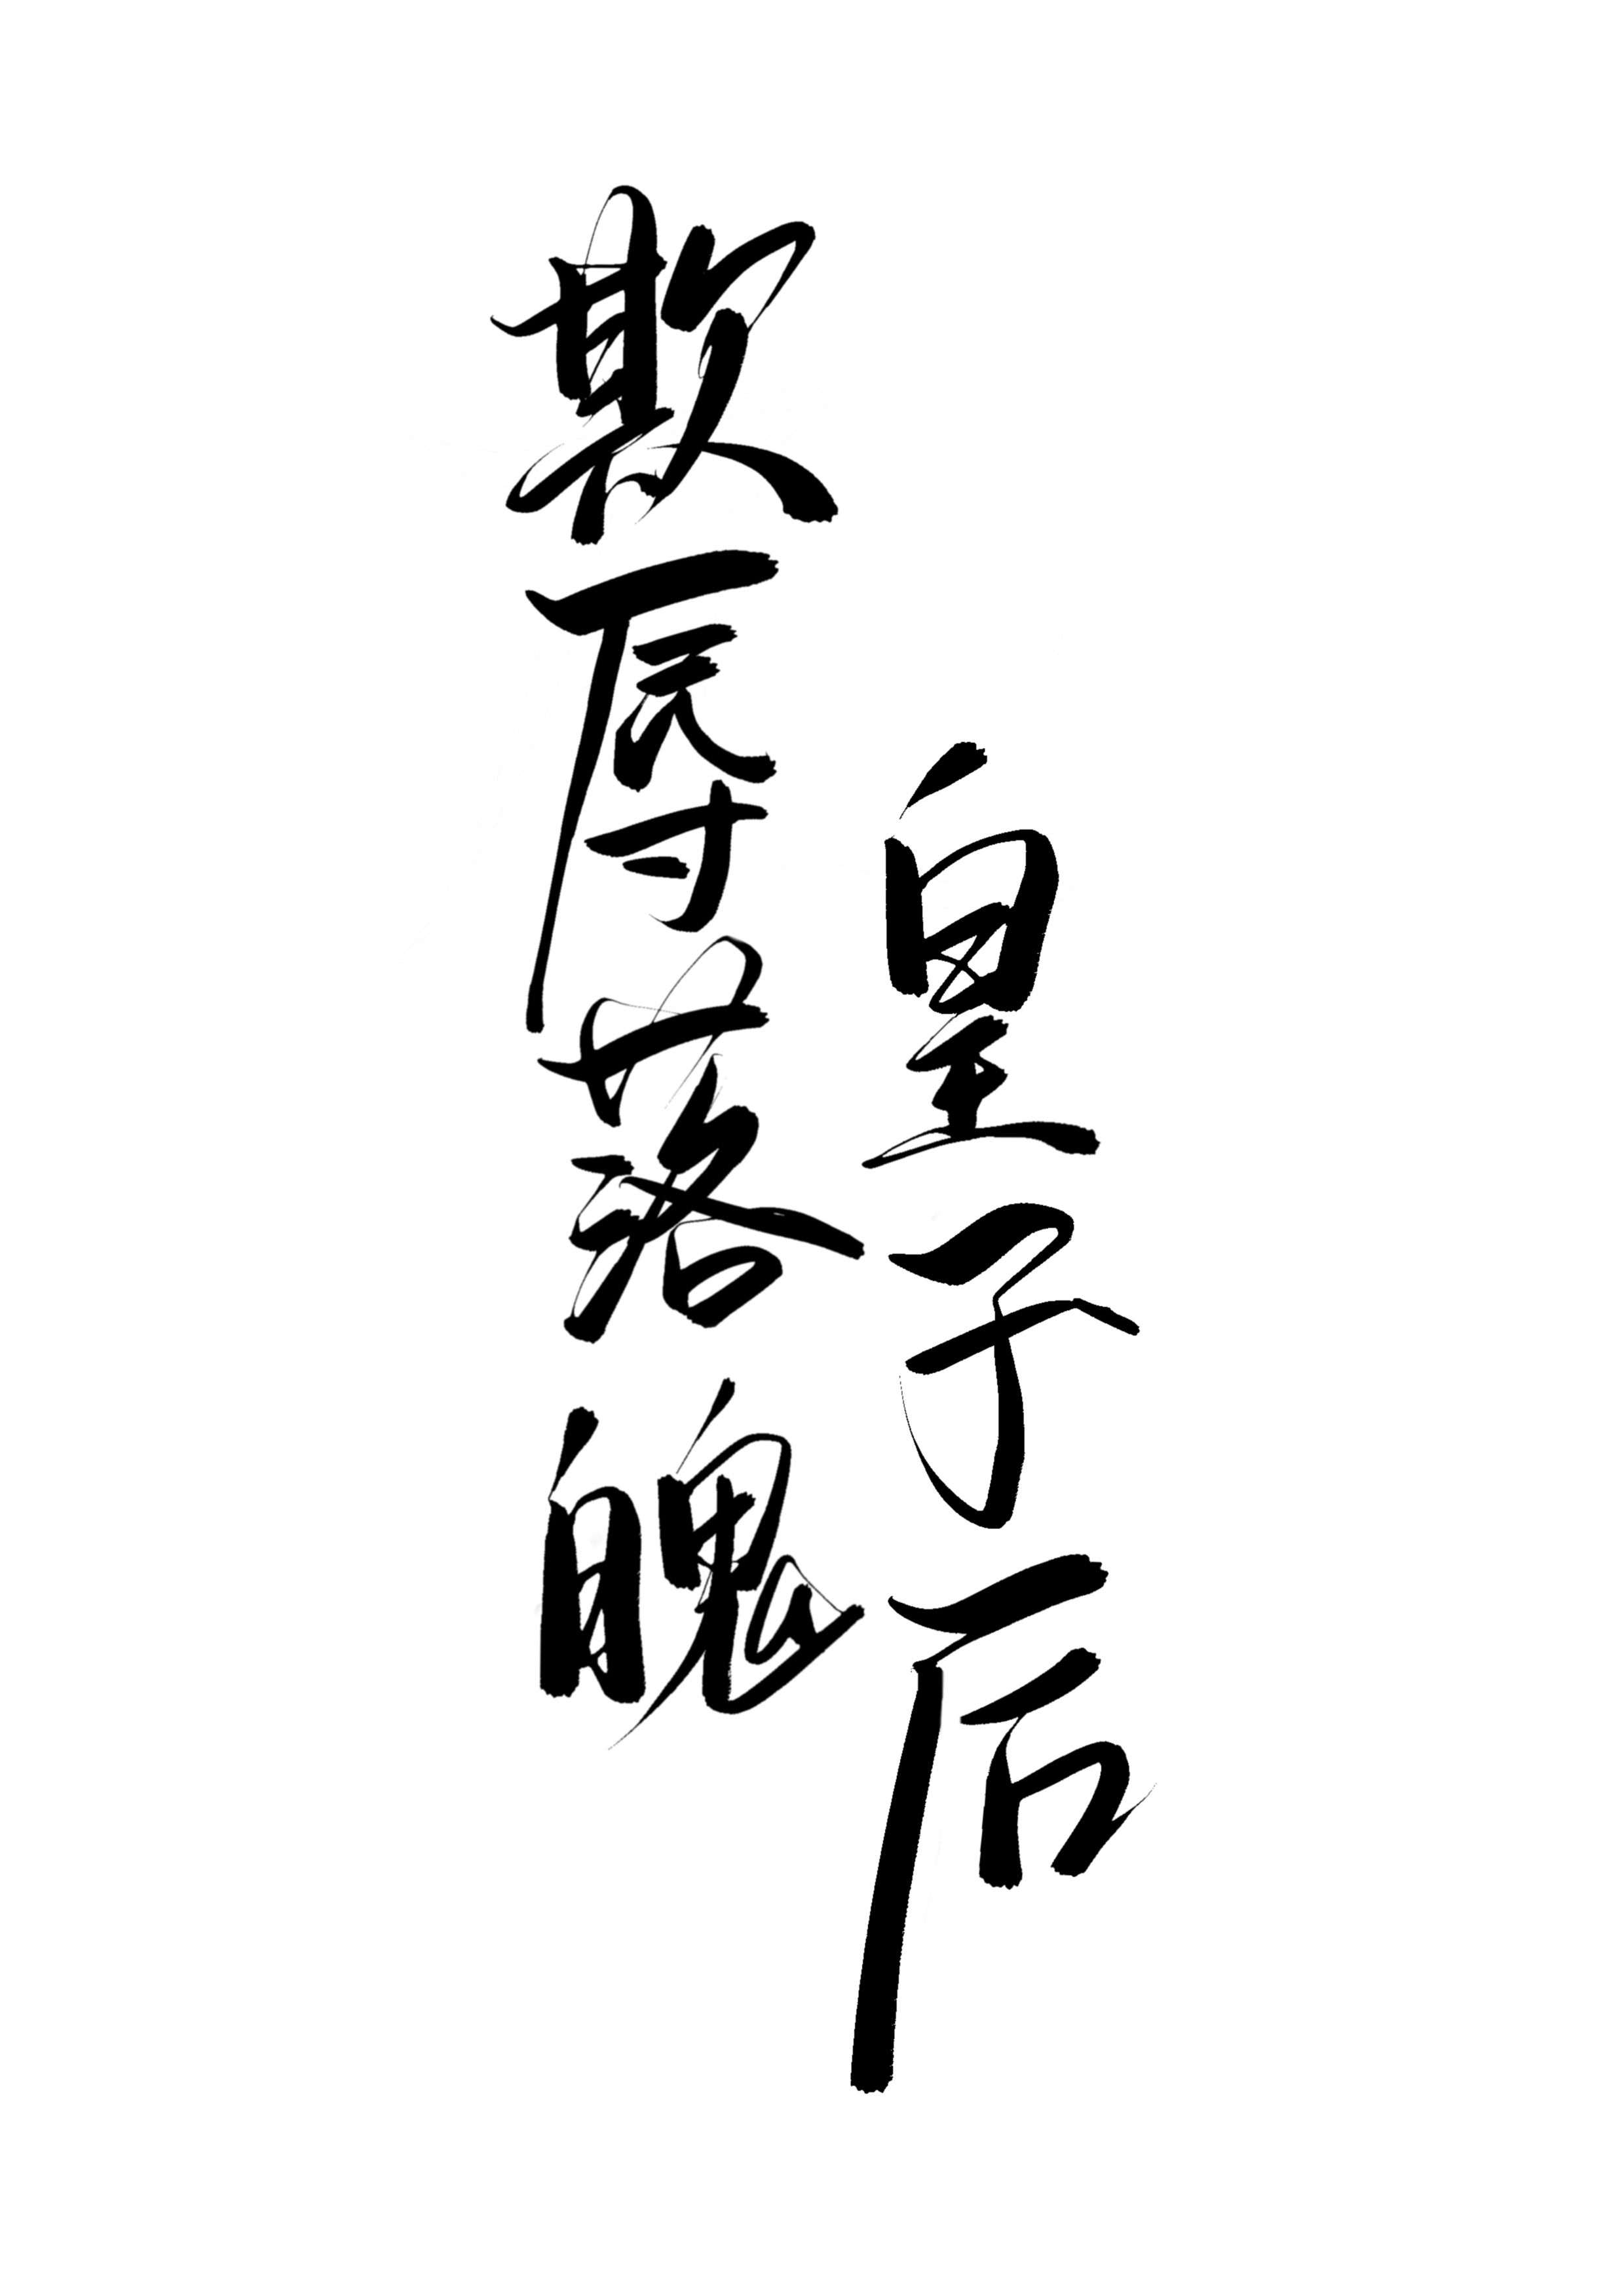 欺辱落魄
皇子后